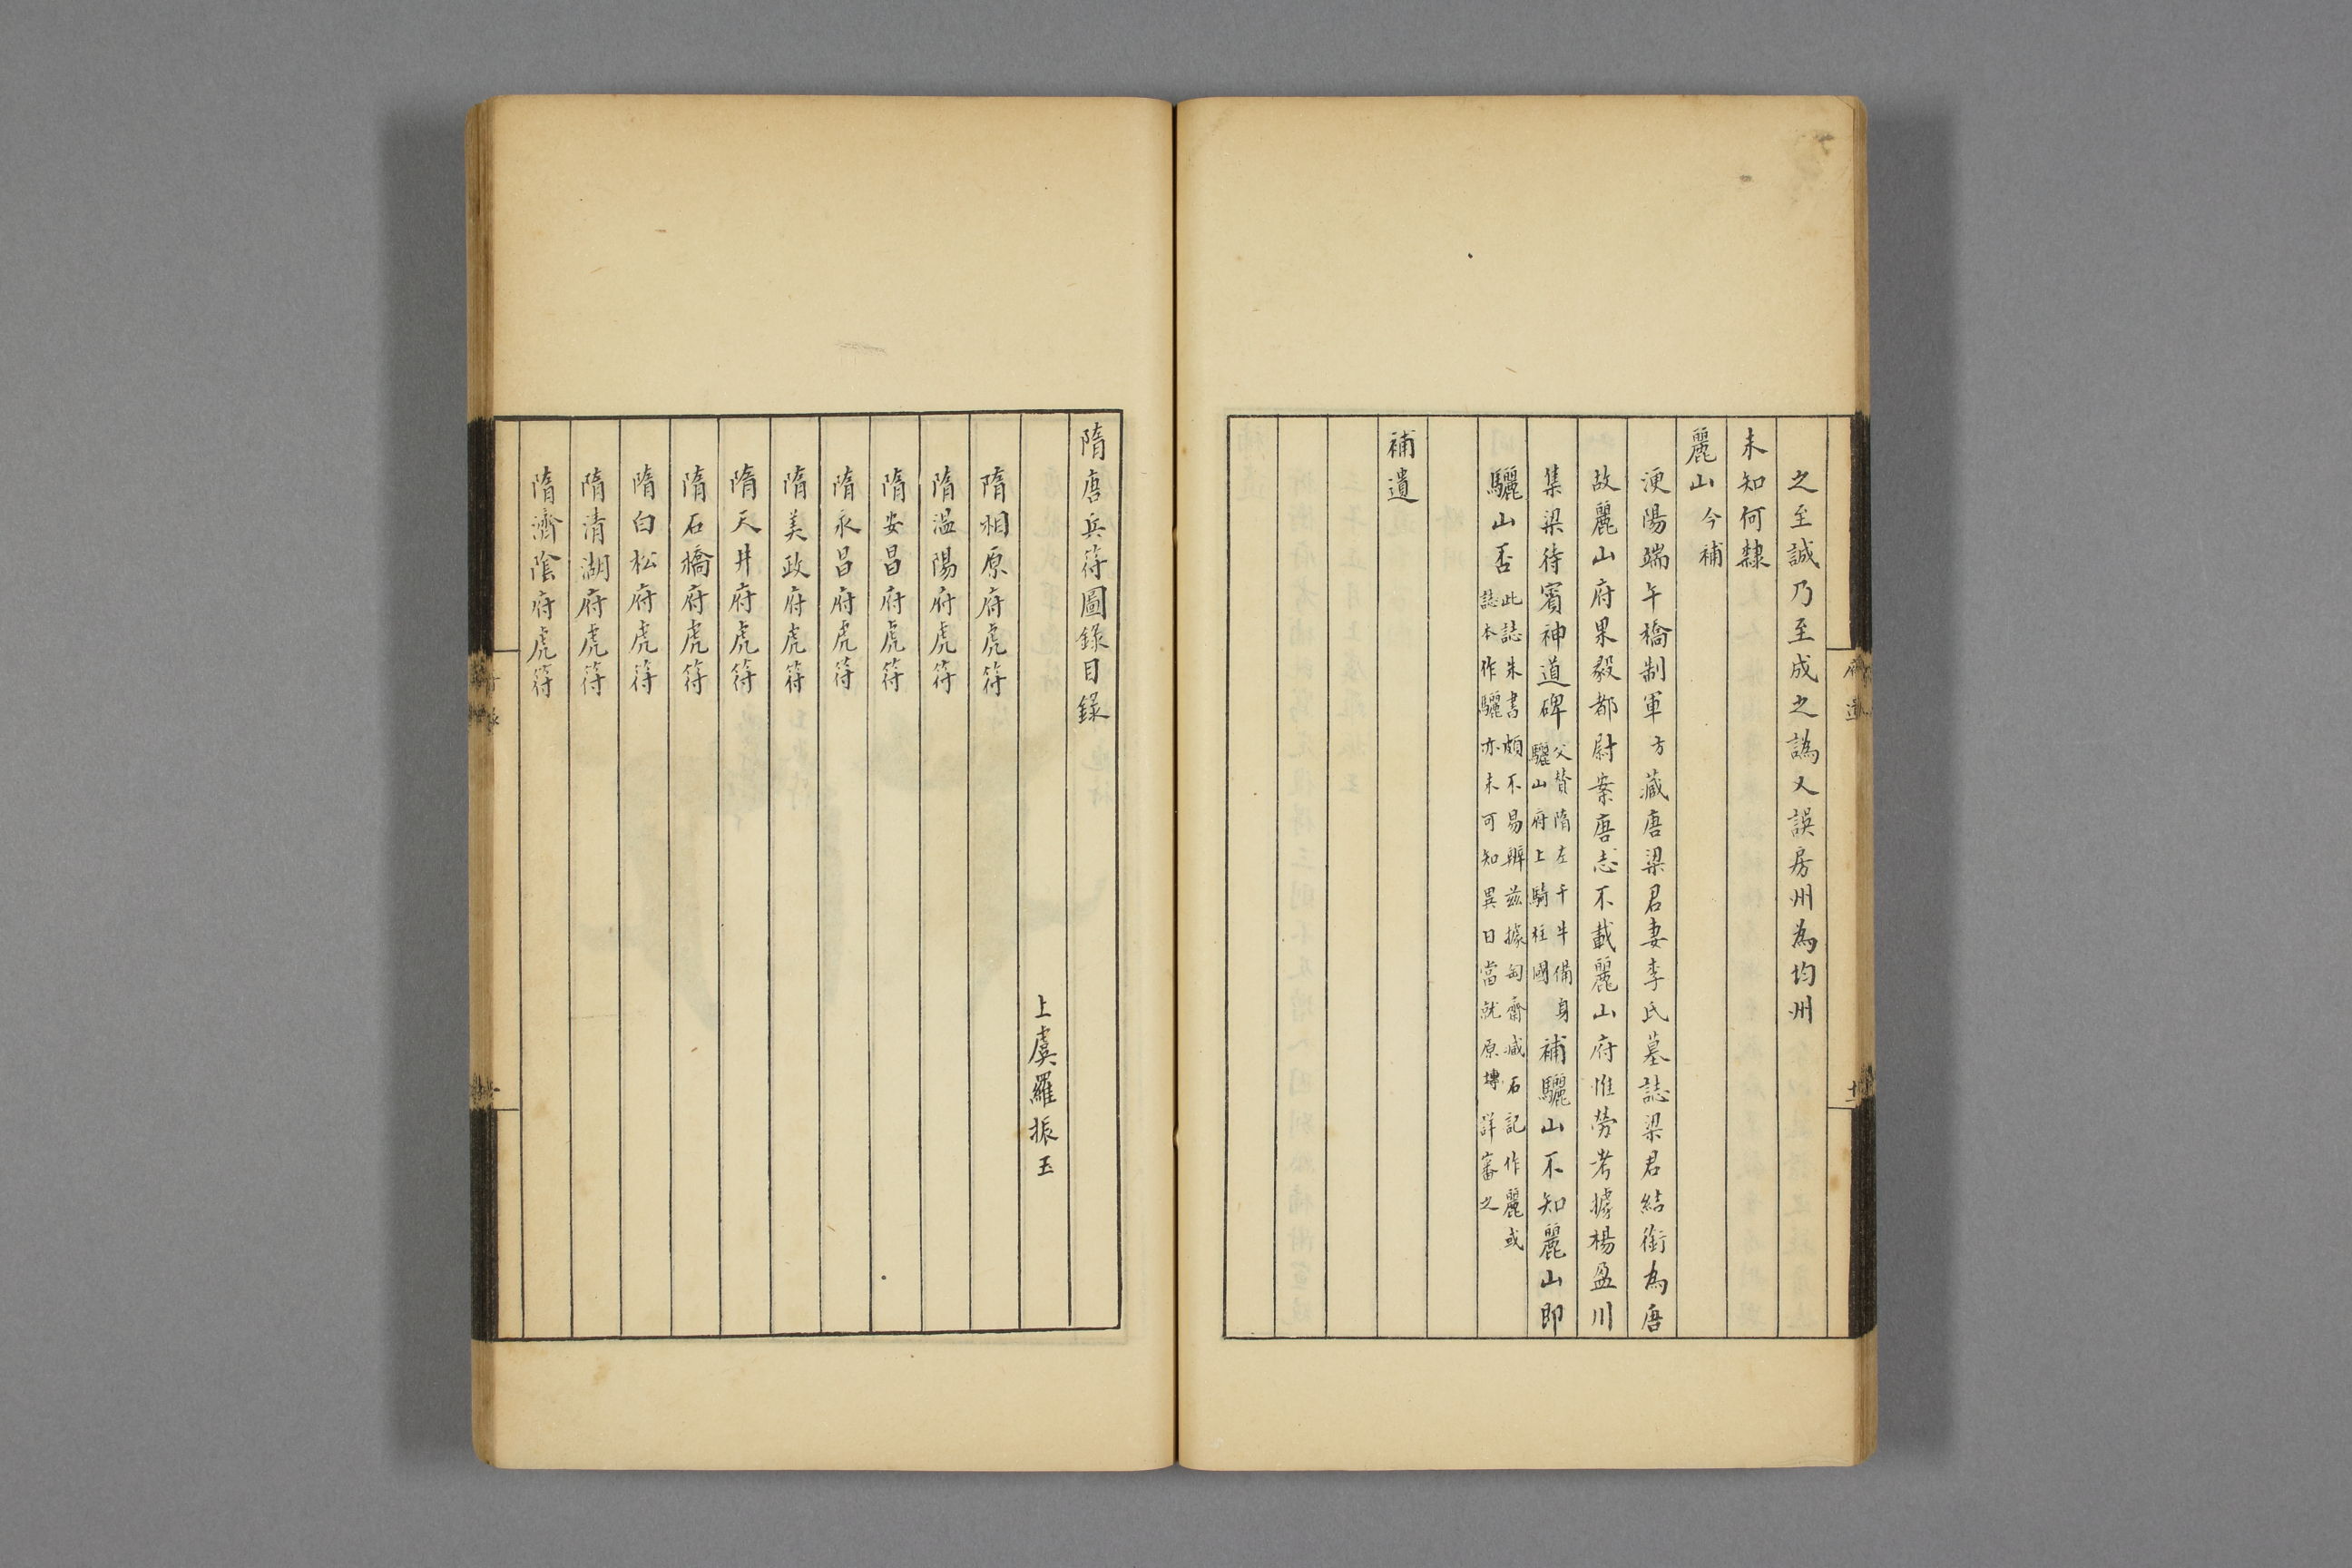 之至誠乃至成之譌又誤房州為均州
未知何隸
麗山今補
浭陽端午橋制軍方藏唐梁君妻李氏墓誌梁君結銜為唐
故麗山府果毅都尉案唐志不載麗山府惟勞考據楊盈川
集梁待賓神道碑父贊隋左千牛備身驪山府上騎柱國補驪山不知麗山即
驪山否此誌朱書頗不易辨茲據匋齋臧石記作麗或誌本作驪亦未可知異日當就原塼詳審之
補遺
隋唐兵符圖錄目錄
上虞羅振玉
隋相原府虎符
隋溫陽府虎符
隋安昌府虎符
隋永昌府虎符
隋美政府虎符
隋天井府虎符
隋石橋府虎符
隋白松府虎符
隋清湖府虎符
隋濟陰府虎符